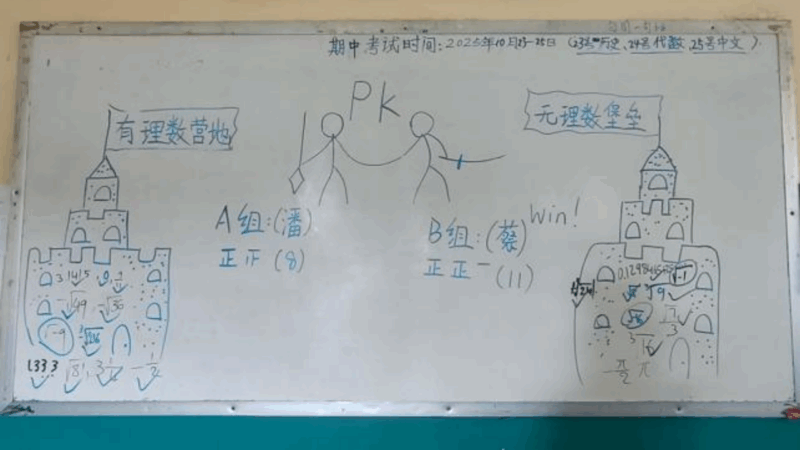 期中考试时间：2025年10月23-25日（23号历史、24号代数、25号中文）.
PK
有理数营地
无理数堡垒
A组：(潘)
正正 (8)
B组：(蔡) Win!
正正一 (11)
3.1415
√49 -√36
-9 ³√216
1.333 √81
0.1298
³√9
π/3
³√16
-π/2 π